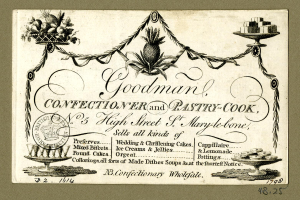 Goodman,
CONFECTIONER and PASTRY-COOK,
No. 5 High Street St. Mary-le-bone,
Sells all kinds of
Preserves
Mixed Biskets
Pound Cakes
Wedding & Christening Cakes.
Ice Creams & Jellies
Orgeat
Cappillaire
& Lemonade
Pottings
all sorts of Made Dishes Soups &c at the shortest Notice.
NB. Confectionary Wholesale.
D,2
1798